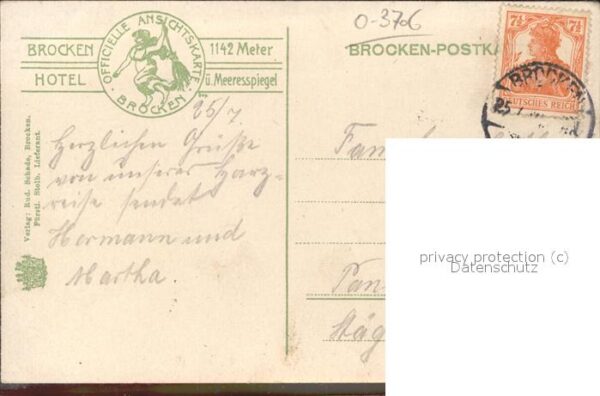 O-3706
BROCKEN 1142 Meter
HOTEL ü. Meeresspiegel
OFFICIELLE ANSICHTSKARTE
BROCKEN
BROCKEN-POSTKA
7½ 7½
DEUTSCHES REICH
BROCKEN
25
Verlag: Rud. Schade, Brocken.
Fürstl. Stolb. Lieferant.
25/7
Herzlichen Grüße
von unserer Harz-
reise sendet
Hermann und
Martha.
Fam
Pan
privacy protection (c)
Datenschutz